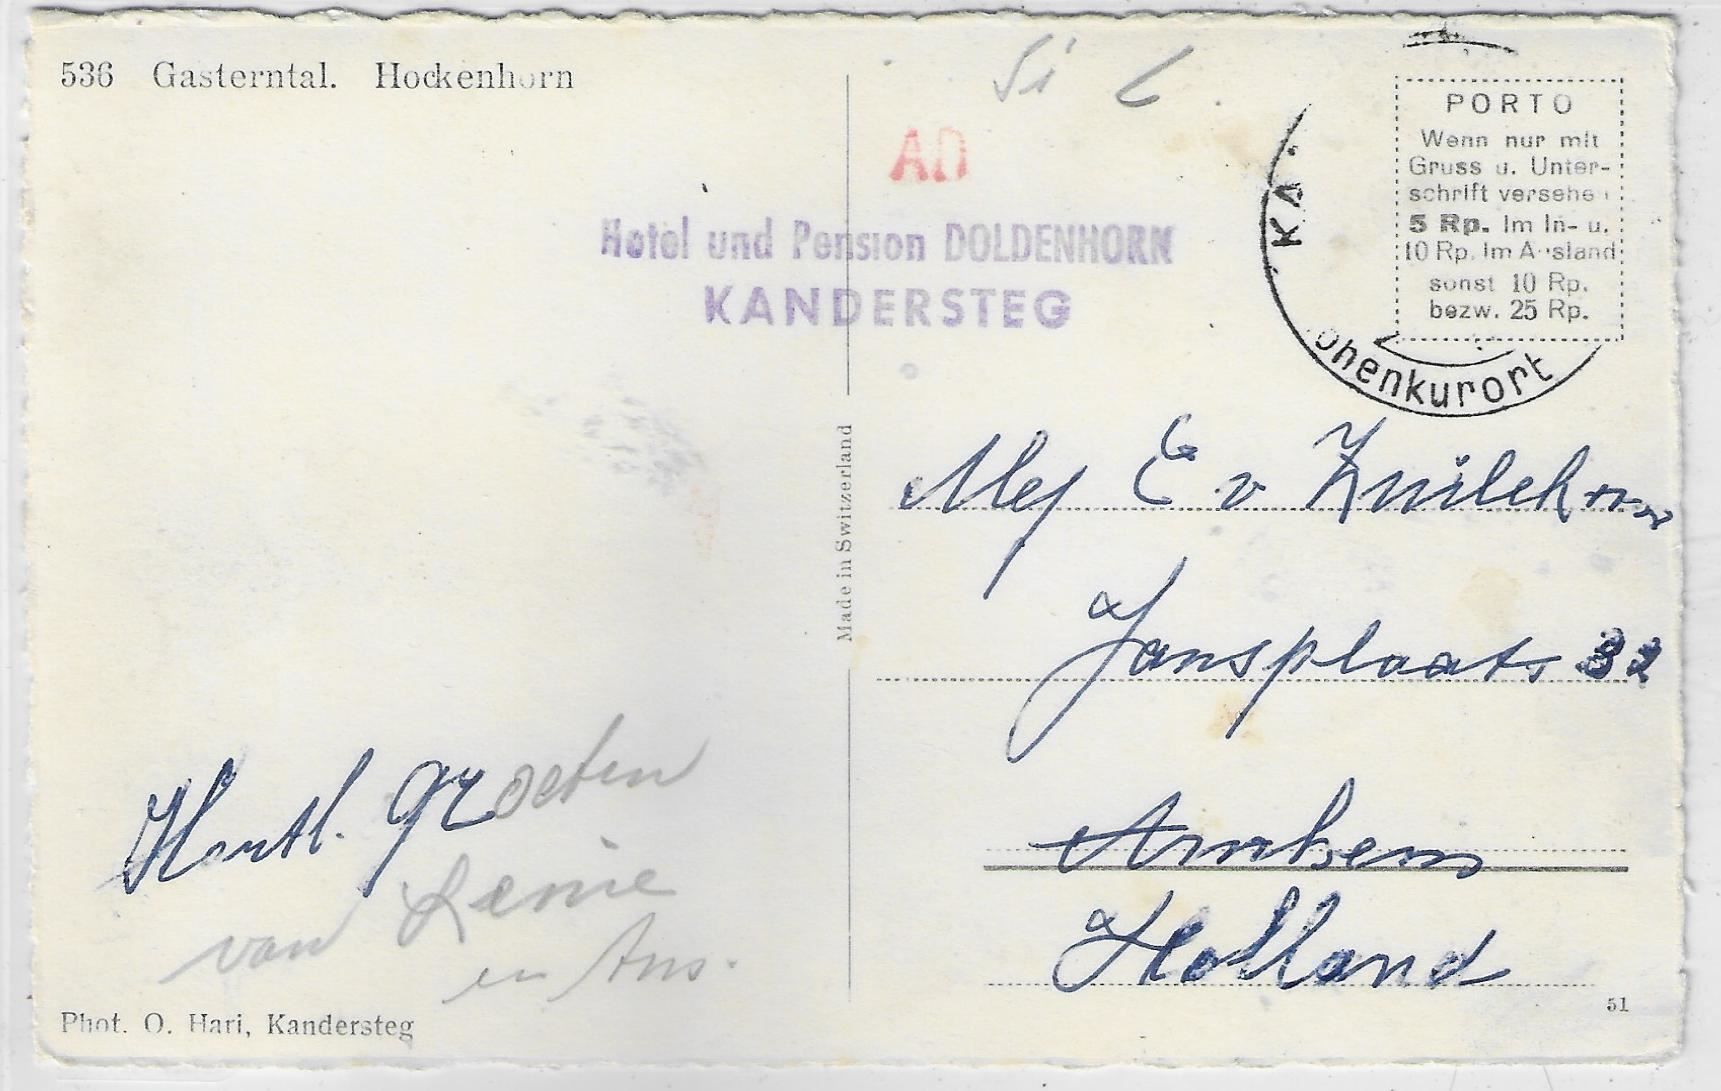 536 Gasterntal. Hockenhorn
Si
AD
Hotel und Pension DOLDENHORN
KANDERSTEG
PORTO
Wenn nur mit
Gruss u. Unter-
schrift versehen
5 Rp. Im In- u.
10 Rp. Im Ausland
sonst 10 Rp.
bezw. 25 Rp.
KA
ohenkurort
Made in Switzerland
Mej E v
Jansplaats 32
Arnhem
Holland
Hartl. groeten
van Lenie
en
Phot. O. Hari, Kandersteg
51